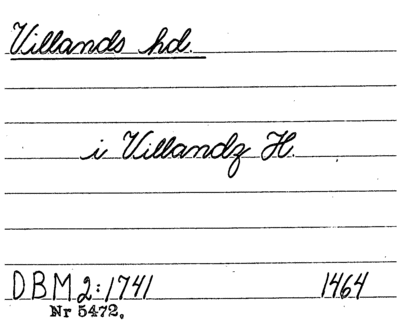 Villands hd.
i Villandz H.
DBM 2:1741 1464
Nr 5472.